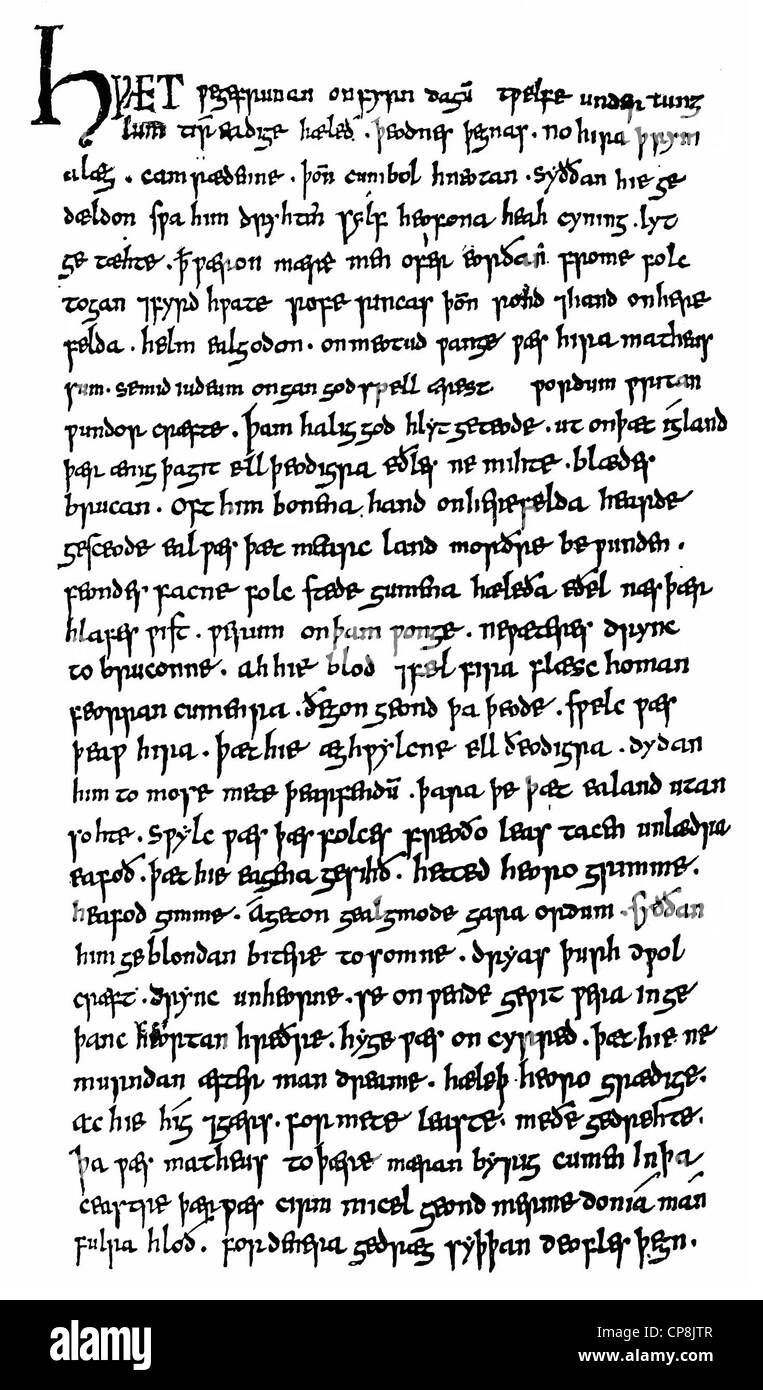 HǷÆT ƿegefrunan onfyrn dagū tƿelfe under tung
lum tir eadige hæleð · þeodnes þegnas · no hira þrym
alæg · cam rædenne · þoñ cumbol hneotan · syððan hie ge
dældon sƿa him dryhteñ sylf heofona heah cyning · lyt
ge tæhte · ꝥ ƿæron mære men ofer eorðan frome folc
togan ⁊fyrd hƿate rofe rincas þoñ rond ⁊hand onhere
felda · helm ealgodon · onmeotud ƿange ƿæs hira matheus
sum · semid iudeum ongan godspell ærest ƿordum ƿritan
ƿundor cræfte · þam halig god hlyt geteode · ut onþæt igland
þær ænig þagit ell þeodigra eðles ne mihte · blædes
brucan · oft him bonena hand onherefelda hearde
gesceode eal ƿæs þæt mearc land morðre be ƿunden ·
feondes facne folc stede gumena hæleða eðel næs þær
hlafes ƿist · ƿerum onþam ƿonge · neƿæteres drync
to bruconne · ah hie blod ⁊fel fira flæsc homan
feorran cumenra · ðegon geond þa þeode · sƿelc ƿæs
þeaƿ hira · þæt hie æghƿylcne ell ðeodigra · dydan
him to mose mete þearfendū · þara þe þæt ealand utan
sohte · sƿylc ƿæs þæs folces freoðo leas tacen unlædra
eafoð · þæt hie eagena gesihð · hetted heoro grimme ·
heafod gimme · ageton gealgmode gara ordum · syððan
him geblondan bitere tosomne · dryas þurh dƿol
cræft · drync unheorne · se onƿende geƿit ƿera inge
þanc heortan hreðre · hyge ƿæs on cyrred · þæt hie ne
murndan æfter man dreame · hæleþ heoro grædige ·
ac hie hig ⁊gærs · formete leaste · meðe gedrehte ·
þa ƿæs matheus to þære mæran byrig cumen Inþa
ceastre þær ƿæs cirm micel geond mermedonia mań
fulra hloð · fordenera gedræg syþþan deofles þegn ·
alamy
Image ID: CP8JTR
www.alamy.com